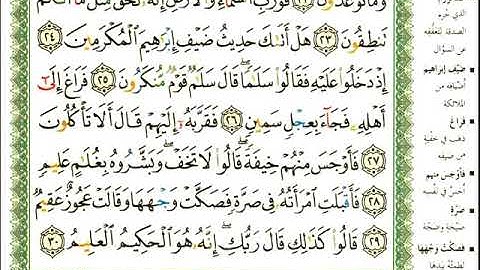 وما توعدون ٢٢ فورب السماء والأرض إنه لحق مثل ما أنكم
تَنطِقُونَ ٢٣ هَلْ أَتَىٰكَ حَدِيثُ ضَيْفِ إِبْرَٰهِيمَ ٱلْمُكْرَمِينَ ٢٤
إِذْ دَخَلُوا۟ عَلَيْهِ فَقَالُوا۟ سَلَٰمًا ۖ قَالَ سَلَٰمٌ قَوْمٌ مُّنكَرُونَ ٢٥ فَرَاغَ إِلَىٰٓ
أَهْلِهِۦ فَجَآءَ بِعِجْلٍ سَمِينٍ ٢٦ فَقَرَّبَهُۥٓ إِلَيْهِمْ قَالَ أَلَا تَأْكُلُونَ
٢٧ فَأَوْجَسَ مِنْهُمْ خِيفَةً ۖ قَالُوا۟ لَا تَخَفْ ۖ وَبَشَّرُوهُ بِغُلَٰمٍ عَلِيمٍ
٢٨ فَأَقْبَلَتِ ٱمْرَأَتُهُۥ فِى صَرَّةٍ فَصَكَّتْ وَجْهَهَا وَقَالَتْ عَجُوزٌ عَقِيمٌ
٢٩ قَالُوا۟ كَذَٰلِكِ قَالَ رَبُّكِ ۖ إِنَّهُۥ هُوَ ٱلْحَكِيمُ ٱلْعَلِيمُ ٣٠
الذي حرم
الصدقة لتعففه
عن السؤال
ضيف إبراهيم
أضيافه من
الملائكة
فراغ
ذهب في خفية
من ضيفه
فأوجس منهم
أحس في نفسه
صرة
صيحة وضجة
فصكت وجهها
لطمته بيدها